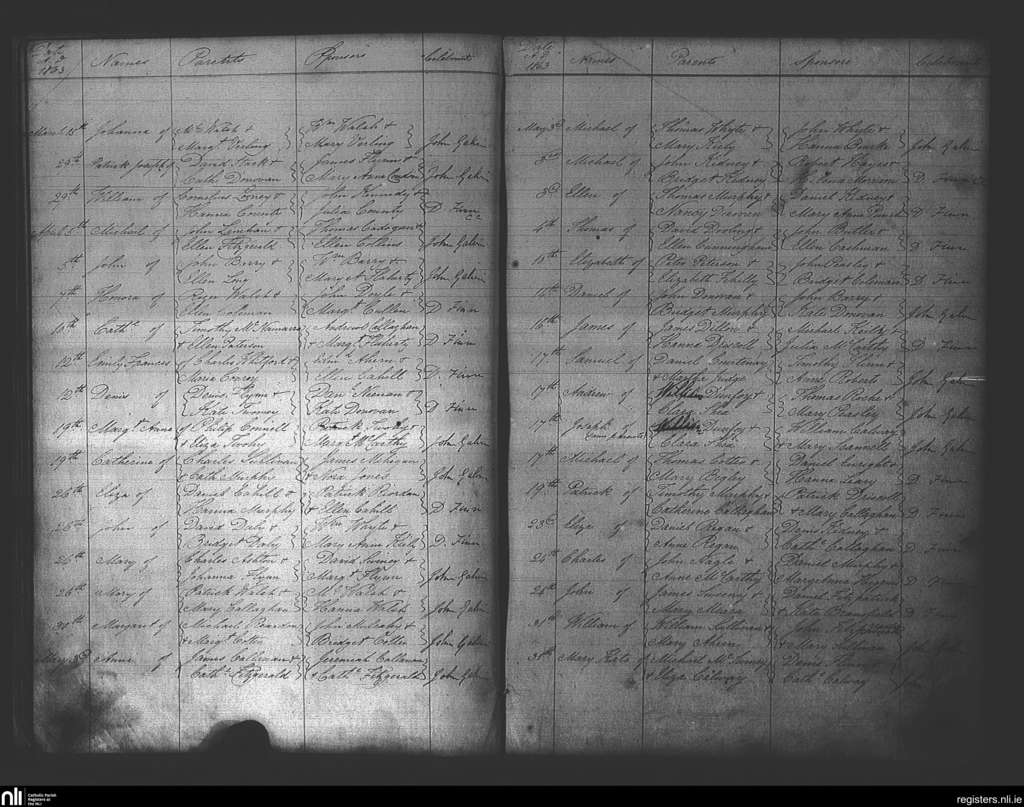 Date A.D. 1863 Names Parents Sponsors Celebrant
March 15th Johanna of Wm Walsh & Wm Walsh &
Margt Verling Mary Verling John Galvin
29th Patrick Joseph of David Stack & James Flynn &
Cath Donovan Mary Anne John Galvin
29th William of Cornelius & John Kennedy &
Hanna County Julia County D Finn CC
April 5th Michael of John Linehan & Thomas Cadogan &
Ellen Fitzgerald Ellen Collins John Galvin
5th John of John Berry & Wm Barry &
Ellen Long Margt Flaherty John Galvin
7th Honora of Roger Walsh & John Doyle &
Ellen Coleman Margt Cullen D Finn
10th Cath of Timothy McNamara Andrew Callaghan
& Ellen Peterson & Margt Flaherty D Finn
12th Emily Frances of Charles & Ahern &
Maria Ellen Cahill D. Finn
12th Denis of Denis Flynn & Danl &
Kate Kate Donovan D Finn
19th Margt Anne of Philip Connell Patrick Twohy &
& Eliza Twohy Margt McCarthy John Galvin
19th Catherine of Charles Sullivan James Mehigan
& Cath Murphy & Nora Jones John Galvin
26th Eliza of Daniel Cahill & Patrick Riordan
Hanna Murphy & Ellen Cahill D Finn
26th John of David Daly & Wm Whyte &
Bridget Daly Mary Anne D. Finn
26th Mary of Charles Ashton & David &
Johanna Flynn Margt Flynn John Galvin
26th Mary of Patrick Walsh & Wm Walsh &
Mary Callaghan Hanna Walsh John Galvin
30th Margaret of Michael Riordan John Mulcahy &
& Margt Cotter Bridget Cotter John Galvin
May 3d Anne of James Callinan & Jeremiah Callinan
Cath. Fitzgerald & Cath. Fitzgerald John Galvin
Date A.D. 1863 Names Parents Sponsors Celebrant
May 3d Michael of Thomas Whyte & John Whyte &
Mary Kiely Hanna Bourke John Galvin
3d Michael of John Kidney & Robert Hayes &
Bridget Kidney Morrison D. Finn CC
3d Ellen of Thomas Murphy & Daniel Kidney &
Nancy Mary Anne D Finn
4th Thomas of David Dooling & John Butler &
Ellen Cunningham Ellen Cashman D Finn
10th Elizabeth of Peter Peterson & John Peasley &
Elizabeth Bridget Coleman D Finn
14th Daniel of John Donovan & John Barry &
Bridget Murphy Kate Donovan John Galvin
16th James of James Dillon & Michael &
Hanna Driscoll Julia McCarthy D Finn
17th Samuel of Daniel Courtenay Timothy Ahern &
& Martha Judge Anne Roberts John Galvin
17th Andrew of Dunfoy & Thomas Roche &
Eliza Shea Mary Peasley John Galvin
17th Joseph of Dunfoy & William
(same parents) Clara Shea & Mary Scannell John Galvin
17th Michael of Thomas Cotter & Daniel Enright &
Mary Begley Hanna Leary D Finn
19th Patrick of Timothy Murphy & Patrick Driscoll
Catherine Callaghan & Mary Callaghan D Finn
23d Eliza of Daniel Regan & Denis &
Anne Regan Cath. Callaghan D Finn
24th Charles of John Nagle & Daniel Murphy &
Anne McCarthy Mary Anne D
24th John of James Sweeny & Daniel Fitzpatrick
Mary Meara & Kate D Finn
31st William of William Sullivan & John Fitzpatrick
Mary Ahern & Mary Sullivan John
31st Mary Kate of Michael McSweeny Denis
& Eliza Galway Cath. Galway
nli Catholic Parish Registers at the NLI
registers.nli.ie